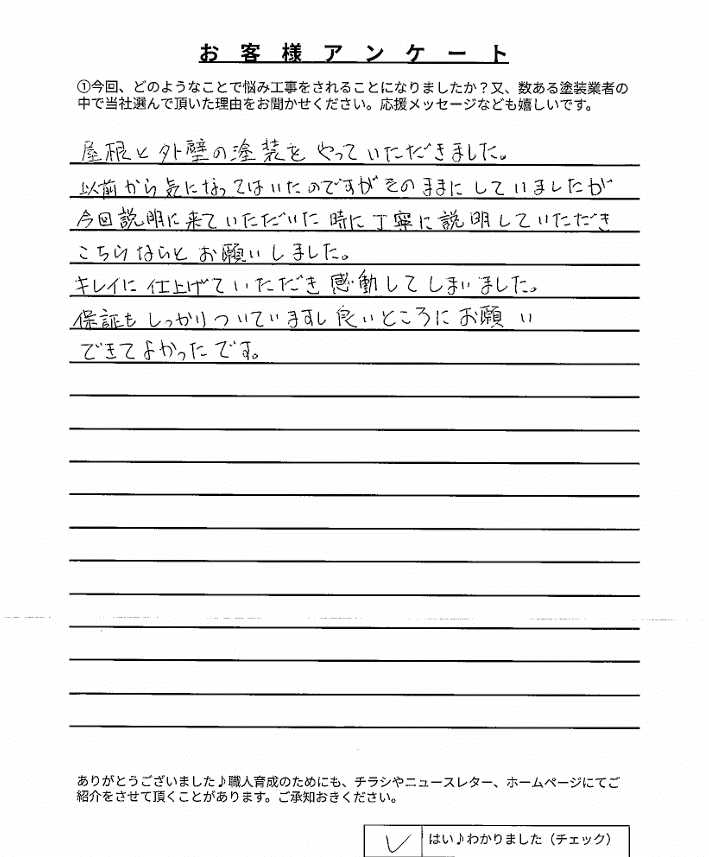 お客様アンケート
①今回、どのようなことで悩み工事をされることになりましたか？又、数ある塗装業者の
中で当社選んで頂いた理由をお聞かせください。応援メッセージなども嬉しいです。
屋根と外壁の塗装を やって いただきました。
以前から気になってはいたのですがそのままに していましたが
今回説明に来ていただいた時に丁寧に説明していただき
こちらならと お願いしました。
キレイに仕上げていただき 感動してしまいました。
保証もしっかりついていますし良いところにお願い
できてよかったです。
ありがとうございました♪職人育成のためにも、チラシやニュースレター、ホームページにてご
紹介をさせて頂くことがあります。ご承知おきください。
✓ はい♪わかりました（チェック）